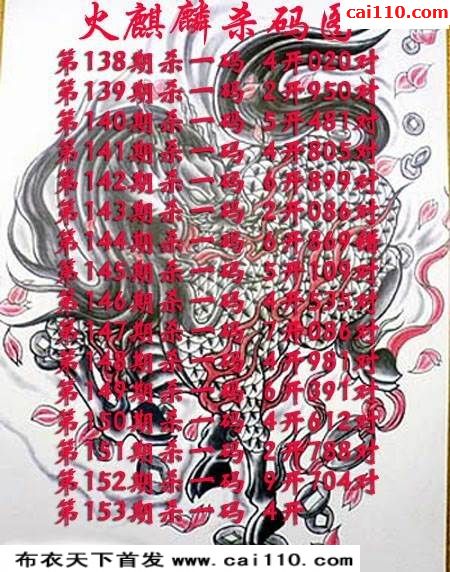 cai110.com
火麒麟杀码区
第138期杀一码 4开020对
第139期杀一码 2开950对
第140期杀一码 5开481对
第141期杀一码 4开805对
第142期杀一码 6开899对
第143期杀一码 2开086对
第144期杀一码 6开869错
第145期杀一码 5开109对
第146期杀一码 4开535对
第147期杀一码 7开086对
第148期杀一码 4开981对
第149期杀一码 6开391对
第150期杀一码 4开612对
第151期杀一码 2开788对
第152期杀一码 9开704对
第153期杀一码 4开
布衣天下首发 www.cai110.com